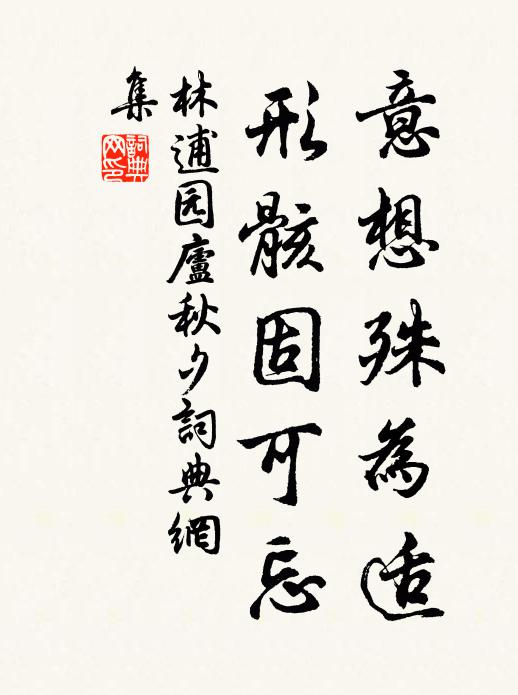 意想殊為适
形骸固可忘
林逋园廬秋夕詞典網
集
詞典网印